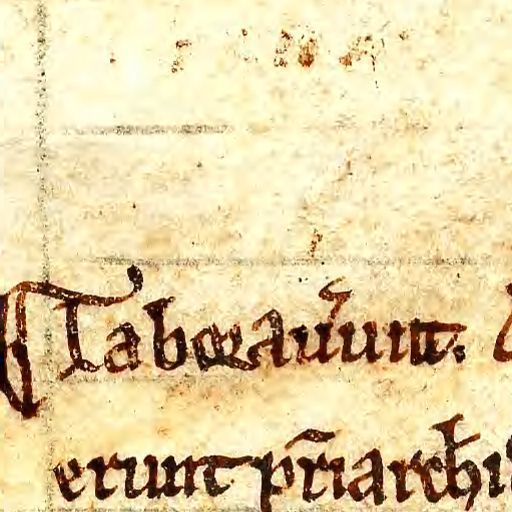 ¶ Laborau͛unt.
erunt pr̄iarchi